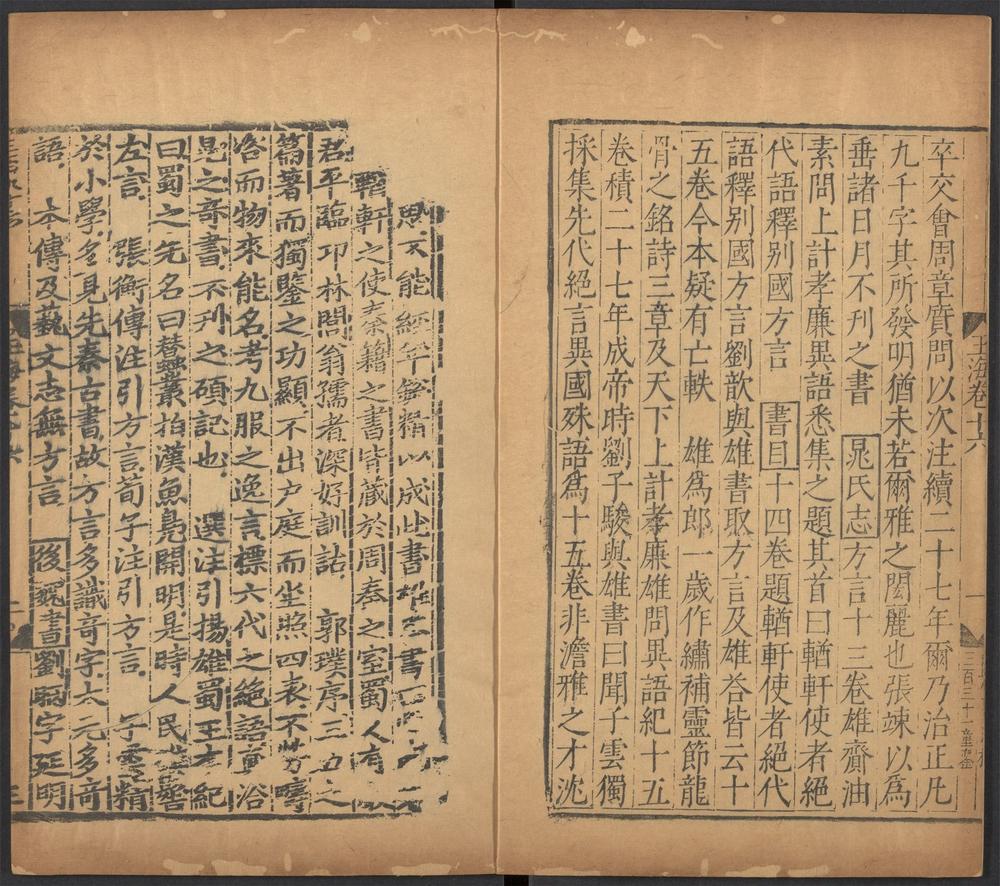 玉海卷十六
一
三百三十一
卒交會周章質問以次注續二十七年爾乃治正凡
九千字其所發明猶未若爾雅之閎麗也張竦以為
垂諸日月不刊之書　晁氏志方言十三卷雄齎油
素問上計孝廉異語悉集之題其首曰輶軒使者絕
代語釋别國方言　書目十四卷題輶軒使者絕代
語釋别國方言劉歆與雄書取方言及雄荅皆云十
五卷今本疑有亡軼　雄爲郎一歲作繡補靈節龍
骨之銘詩三章及天下上計孝廉雄問異語紀十五
卷積二十七年成帝時劉子駿與雄書曰聞子雲獨
採集先代絕言異國殊語爲十五卷非澹雅之才沈
思不能經年銳精以成此書雄
軒之使奏籍之書皆藏於周秦之室蜀人有
君平臨卭林閭翁孺者深好訓詁　郭璞序三五之
篇著而獨鑒之功顯不出户庭而坐照四表不勞疇
咨而物來能名考九服之逸言標六代之絶語真洽
見之奇書不刊之碩記也　選注引揚雄蜀王本紀
曰蜀之先名曰蠶叢拍濩魚鳧開明是時人民
左言　張衡傳注引方言荀子注引方言　子雲精
於小學多見先秦古書故方言多識奇字太元多奇
語　本傳及藝文志無方言　後魏書劉昞字延明